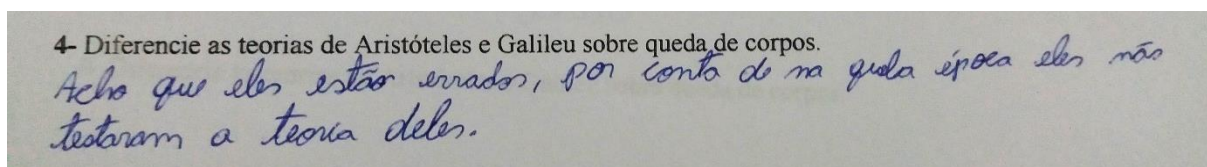 4- Diferencie as teorias de Aristóteles e Galileu sobre queda de corpos.
Acho que eles estão errados, por conta de na quela época eles não
testaram a teoria deles.